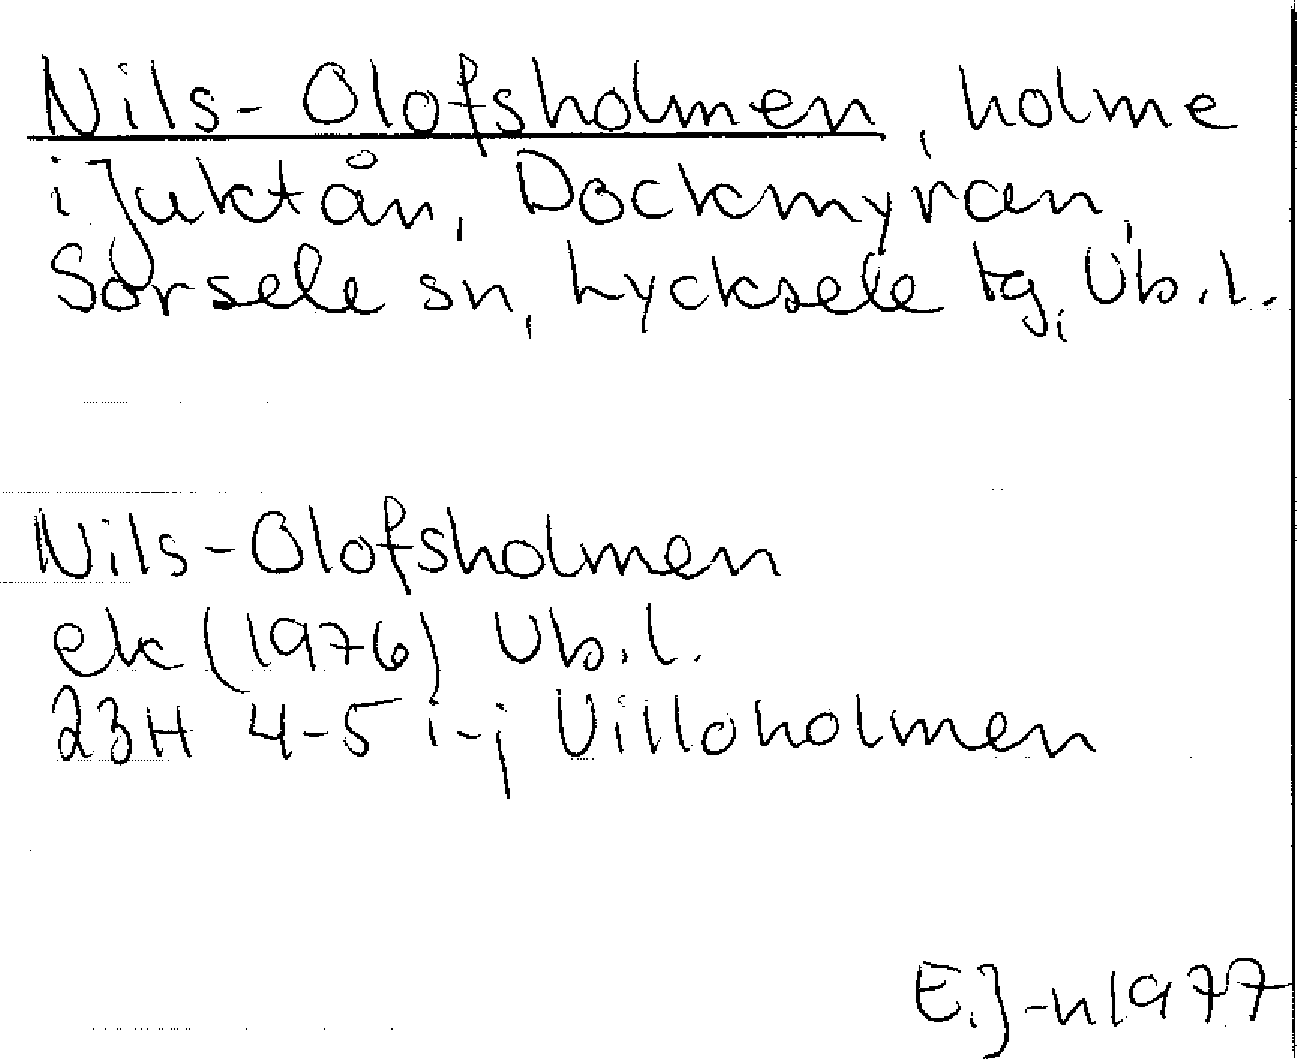 Nils-Olofsholmen, holme
i Juktån, Dockmyran,
Sorsele sn, Lycksele tg, Vb.l.
Nils-Olofsholmen
ek (1976) Vb.l.
23H 4-5 i-j Villoholmen
E.J-n 1977